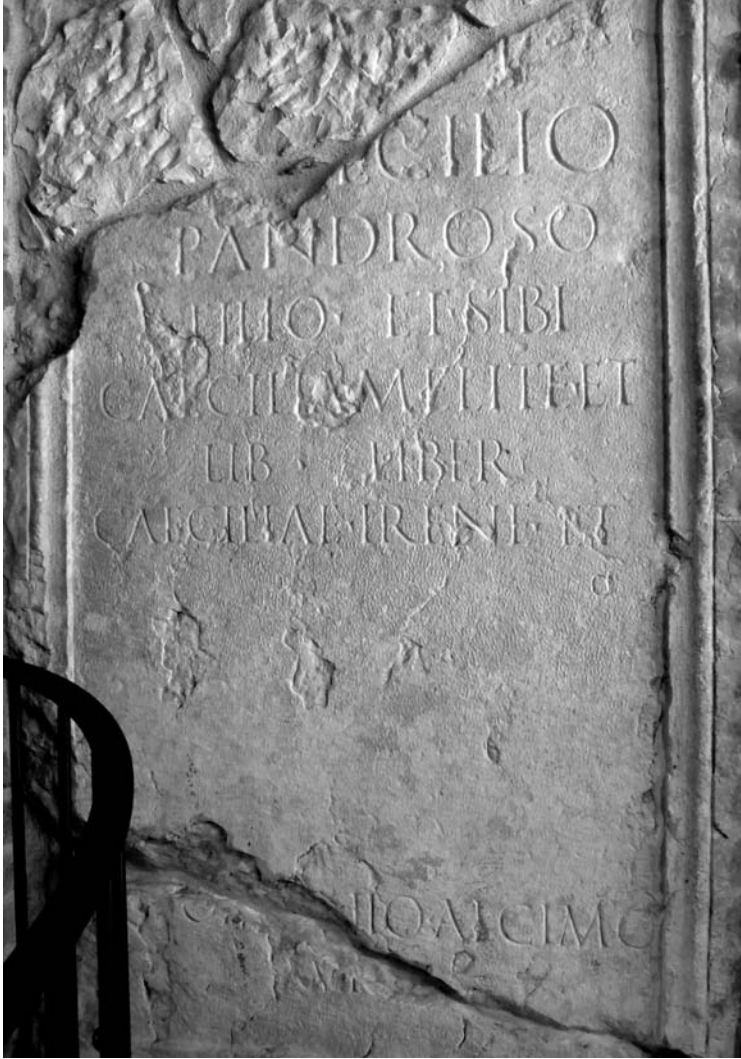 ECILIO
PANDROSO
FILIO · ET SIBI
CAECILIA MELITE ET
LIB · LIBER
CAECILIAE · IRENE · ET
LIO · ALCIMO